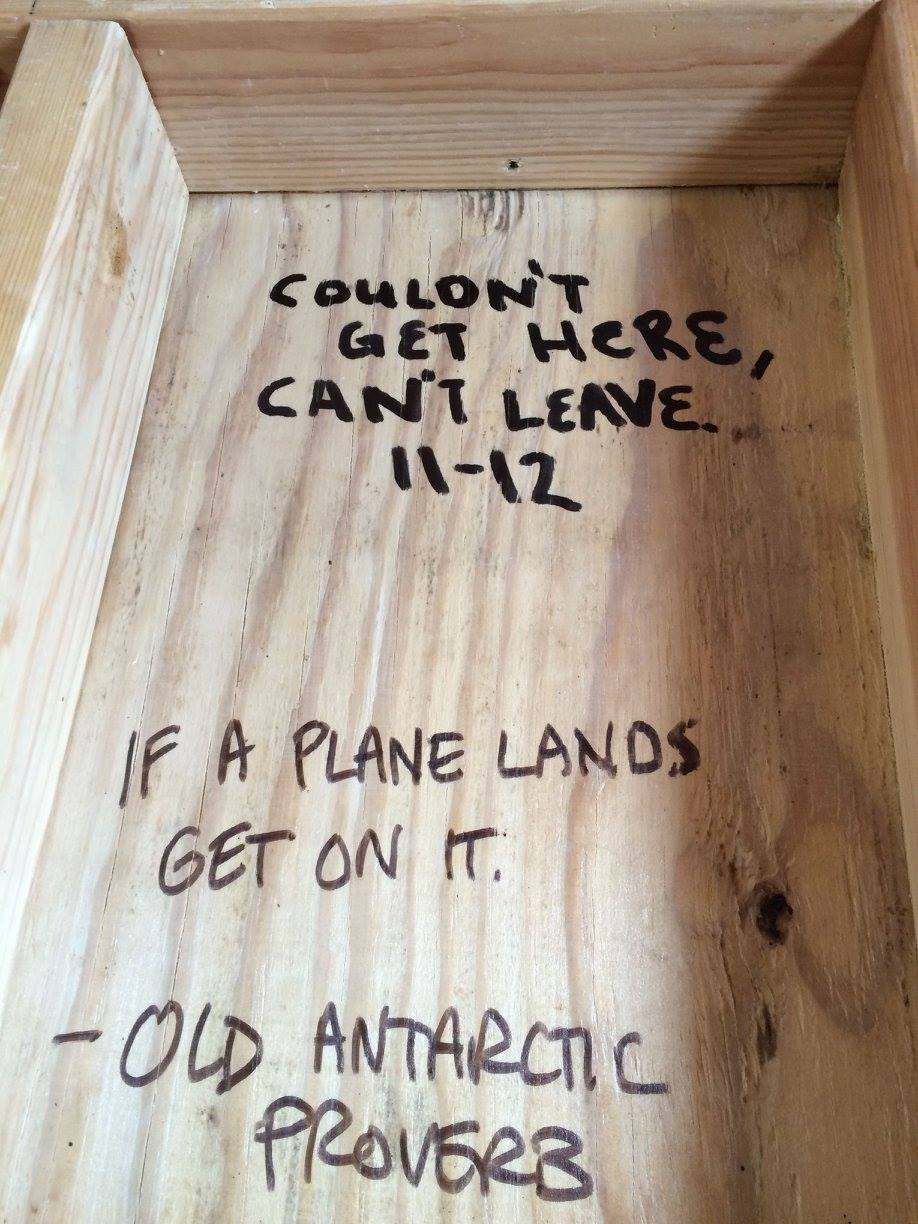 COULDN'T
GET HERE,
CAN'T LEAVE.
11-12
IF A PLANE LANDS
GET ON IT.
- OLD ANTARCTIC
PROVERB